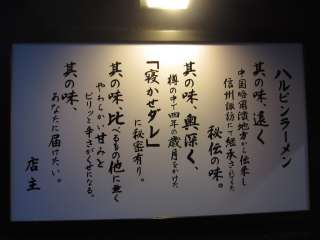 ハルピンラーメン
其の味、遠く
中国哈爾濱地方から伝来し
信州諏訪にて継承されてきた
秘伝の味。
其の味、奥深く、
樽の中で四年の歳月をかけた
「寝かせダレ」
に秘密有り。
其の味、比べるもの他に無く
やわらかい甘みと
ピリッと辛さがくせになる。
其の味、
あなたに届けたい。
店主